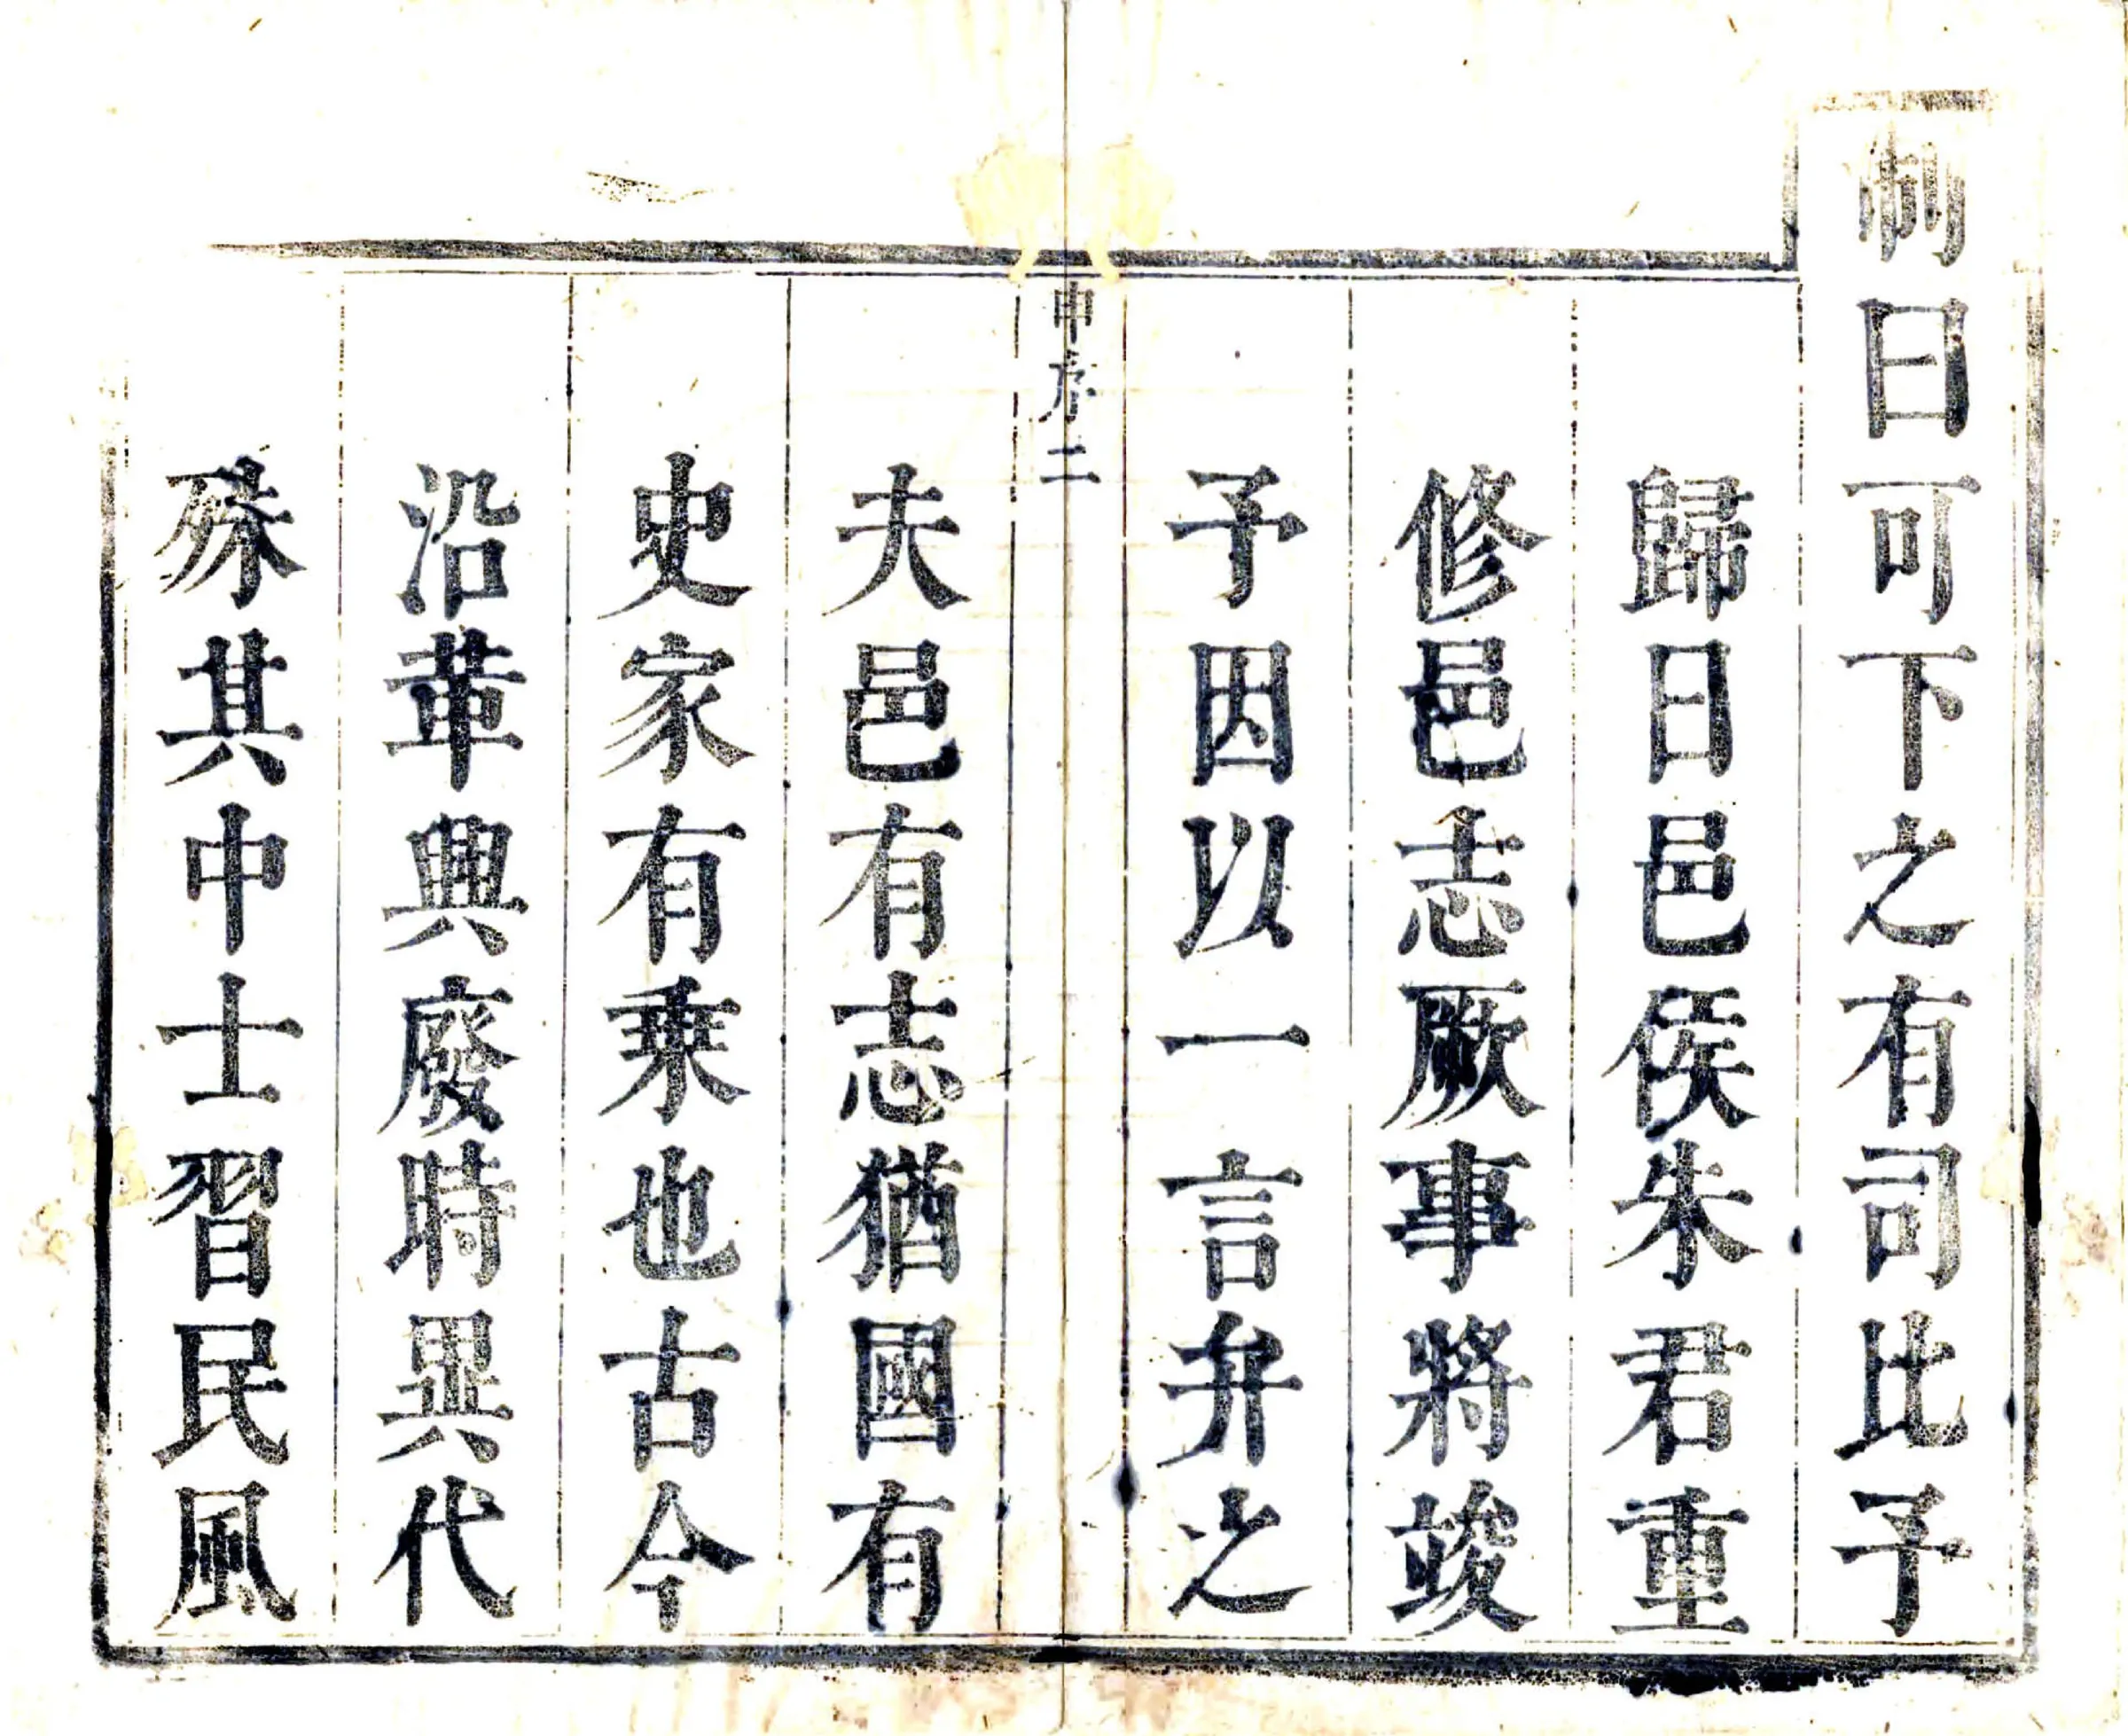 制曰可下之有司比予
歸日邑侯朱君重
修邑志厥事將竣
予因以一言弁之
申序二
夫邑有志猶國有
史家有乗也古今
沿革興廢時異代
殊其中士習民風